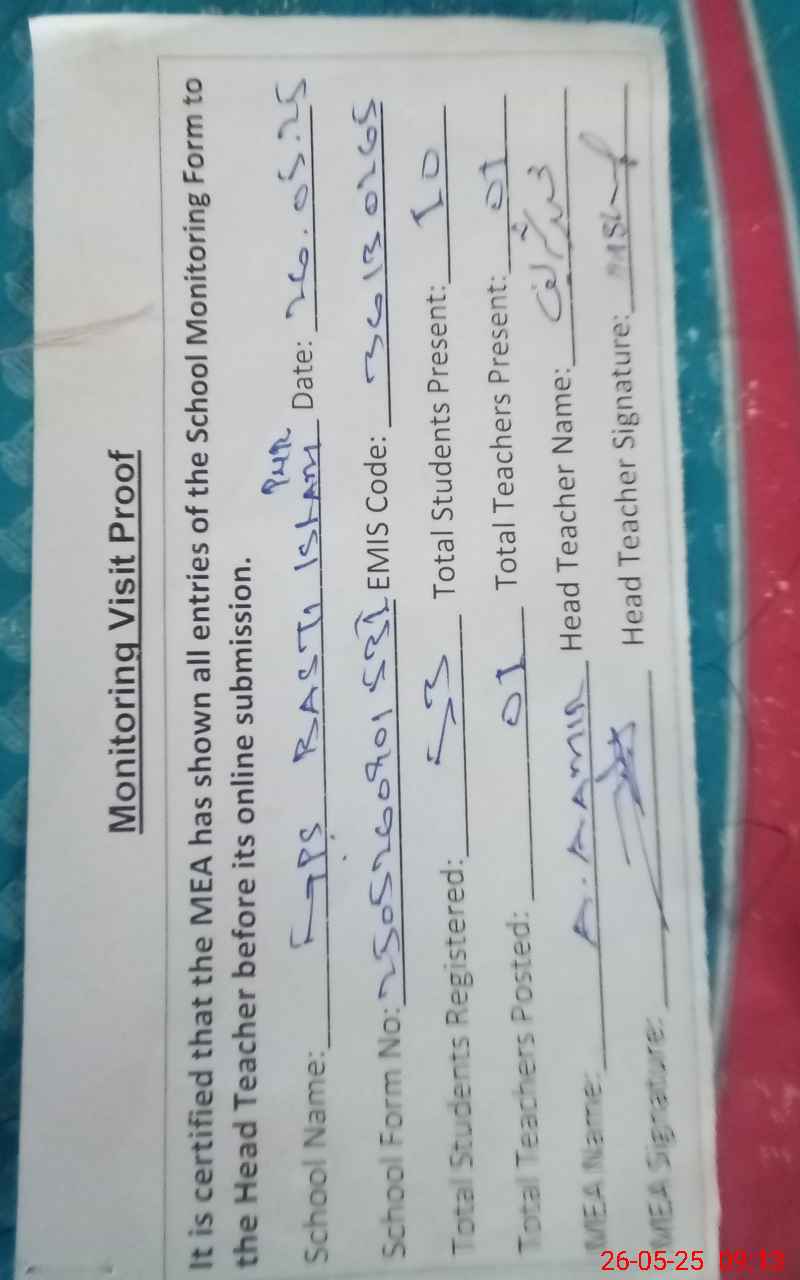 Monitoring Visit Proof
It is certified that the MEA has shown all entries of the School Monitoring Form to
the Head Teacher before its online submission.
School Name: GPS BASTI ISLAM PUR Date: 26.05.25
School Form No: EMIS Code: 36130265
Total Students Registered: 53 Total Students Present: 10
Total Teachers Posted: 01 Total Teachers Present: 01
MEA Name: Head Teacher Name:
MEA Signature: Head Teacher Signature:
26-05-25 09:13